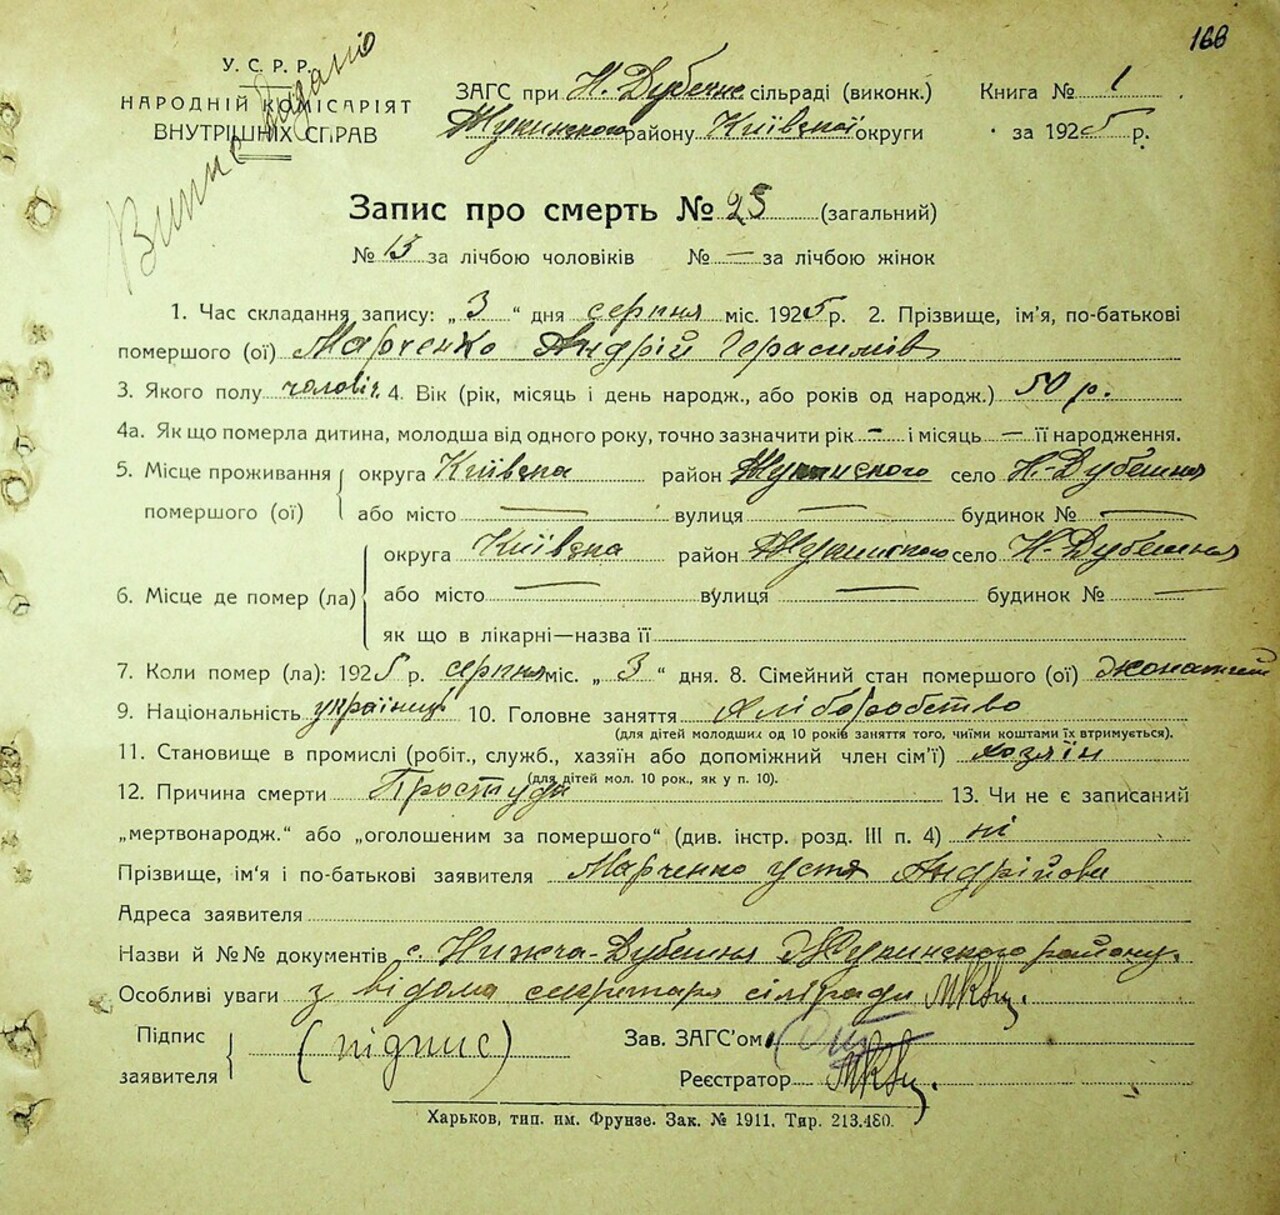 168
У. С. Р. Р.
НАРОДНІЙ КОМІСАРІЯТ
ВНУТРІШНІХ СПРАВ
Випис видано
ЗАГС при Н. Дубечне сільраді (виконк.) Книга № 1
Жукинського району Київської округи за 1925 р.
Запис про смерть № 23 (загальний)
№ 13 за лічбою чоловіків № — за лічбою жінок
1. Час складання запису: „ 3 “ дня серпня міс. 1925 р. 2. Прізвище, ім'я, по-батькові
помершого (ої) Марченко Андрій Герасимів
3. Якого полу чоловіч. 4. Вік (рік, місяць і день народж., або років од народж.) 50 р.
4а. Як що померла дитина, молодша від одного року, точно зазначити рік — і місяць — її народження.
5. Місце проживання округа Київска район Жукинского село Н.-Дубешня
помершого (ої) або місто — вулиця — будинок № —
округа Київска район Жукинского село Н-Дубешня
6. Місце де помер (ла) або місто — вулиця — будинок № —
як що в лікарні—назва її
7. Коли помер (ла): 1925 р. серпня міс. „ 3 “ дня. 8. Сімейний стан помершого (ої) жонатий
9. Національність українці 10. Головне заняття Хліборобство
(для дітей молодших од 10 років заняття того, чиїми коштами їх втримується).
11. Становище в промислі (робіт., служб., хазяїн або допоміжний член сім'ї) хозяін
(для дітей мол. 10 рок., як у п. 10).
12. Причина смерти Простуда 13. Чи не є записаний
„мертвонародж.“ або „оголошеним за помершого“ (див. інстр. розд. III п. 4) ні
Прізвище, ім'я і по-батькові заявителя Марченко Устя Андрійови
Адреса заявителя
Назви й №№ документів с. Нижча-Дубешня Жукинского району.
Особливі уваги з відома секретаря сілради
Підпис (підпис) Зав. ЗАГС'ом
заявителя Реєстратор
Харьков, тип. им. Фрунзе. Зак. № 1911. Тир. 213.480.